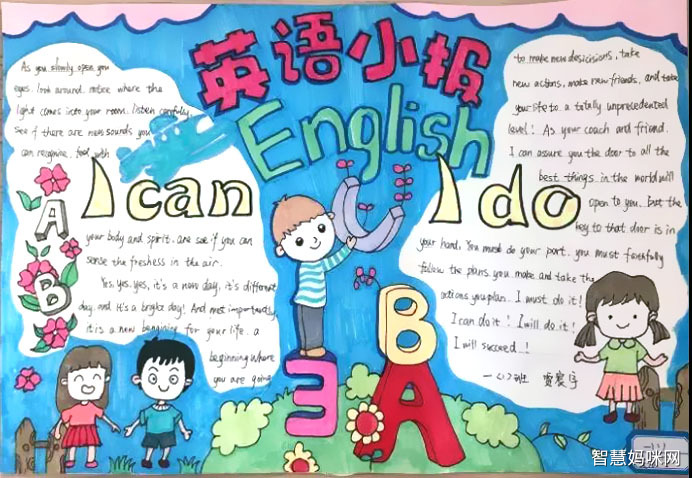 英语小报
English
As you slowly open you
eyes. look around. notice where the
light comes into your room. listen carefully.
see if there are new sounds you
can recognine. feel with
I can
A
B
your body and spirit. are see if you can
sense the freshess in the air.
Yes, yes, yes, it's a now day, it's different
day. and it's a bright day! And most importantly.
it is a new bengining for your life. a
beginning where
you are going
to make new desicisions, take
new actions, make new friends, and take
your life to a totally unprecedented
level! As your coach and friend.
I can assure you the door to all the
best things in the world will
open to you. but the
key to that door is in
your hand. You must do your part. you must faithfully
follow the plans you make and take the
actions you plan. I must do it!
I can do it! I will do it!
I will succeed!
I do
B
A
一(2)班
智慧妈咪网